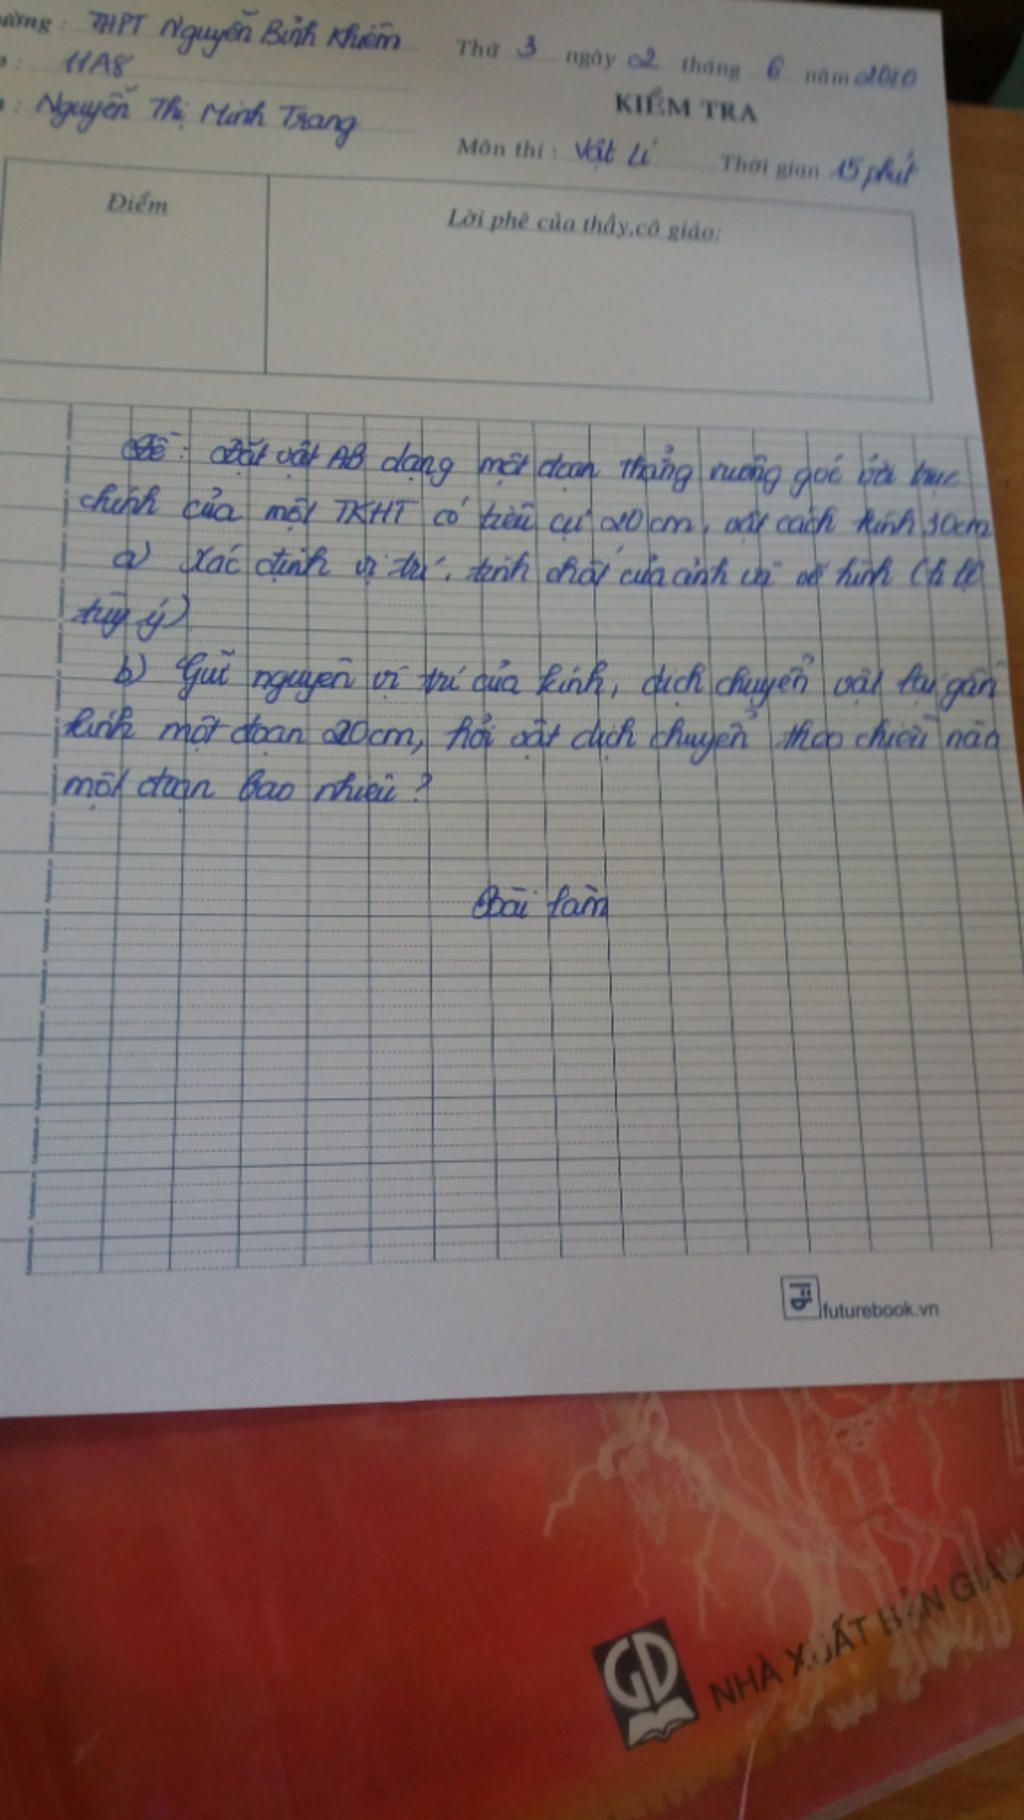 ường: THPT Nguyễn Bỉnh Khiêm
Thứ 3 ngày 02 tháng 6 năm 2020
: 11A8
KIỂM TRA
: Nguyễn Thị Minh Trang
Môn thi: Vật Lí Thời gian 15 phút
Điểm
Lời phê của thầy,cô giáo:
Đề: Đặt vật AB dạng một đoạn thẳng vuông góc với trục
chính của một TKHT có tiêu cự 20cm, vật cách kính 30cm
a) Xác định vị trí, tính chất của ảnh và vẽ hình (tỉ lệ
tùy ý)
b) Giữ nguyên vị trí của kính, dịch chuyển vật lại gần
kính một đoạn 20cm, hỏi vật dịch chuyển theo chiều nào
một đoạn bao nhiêu?
Bài làm
futurebook.vn
GD
NHÀ XUẤT BẢN GIÁ